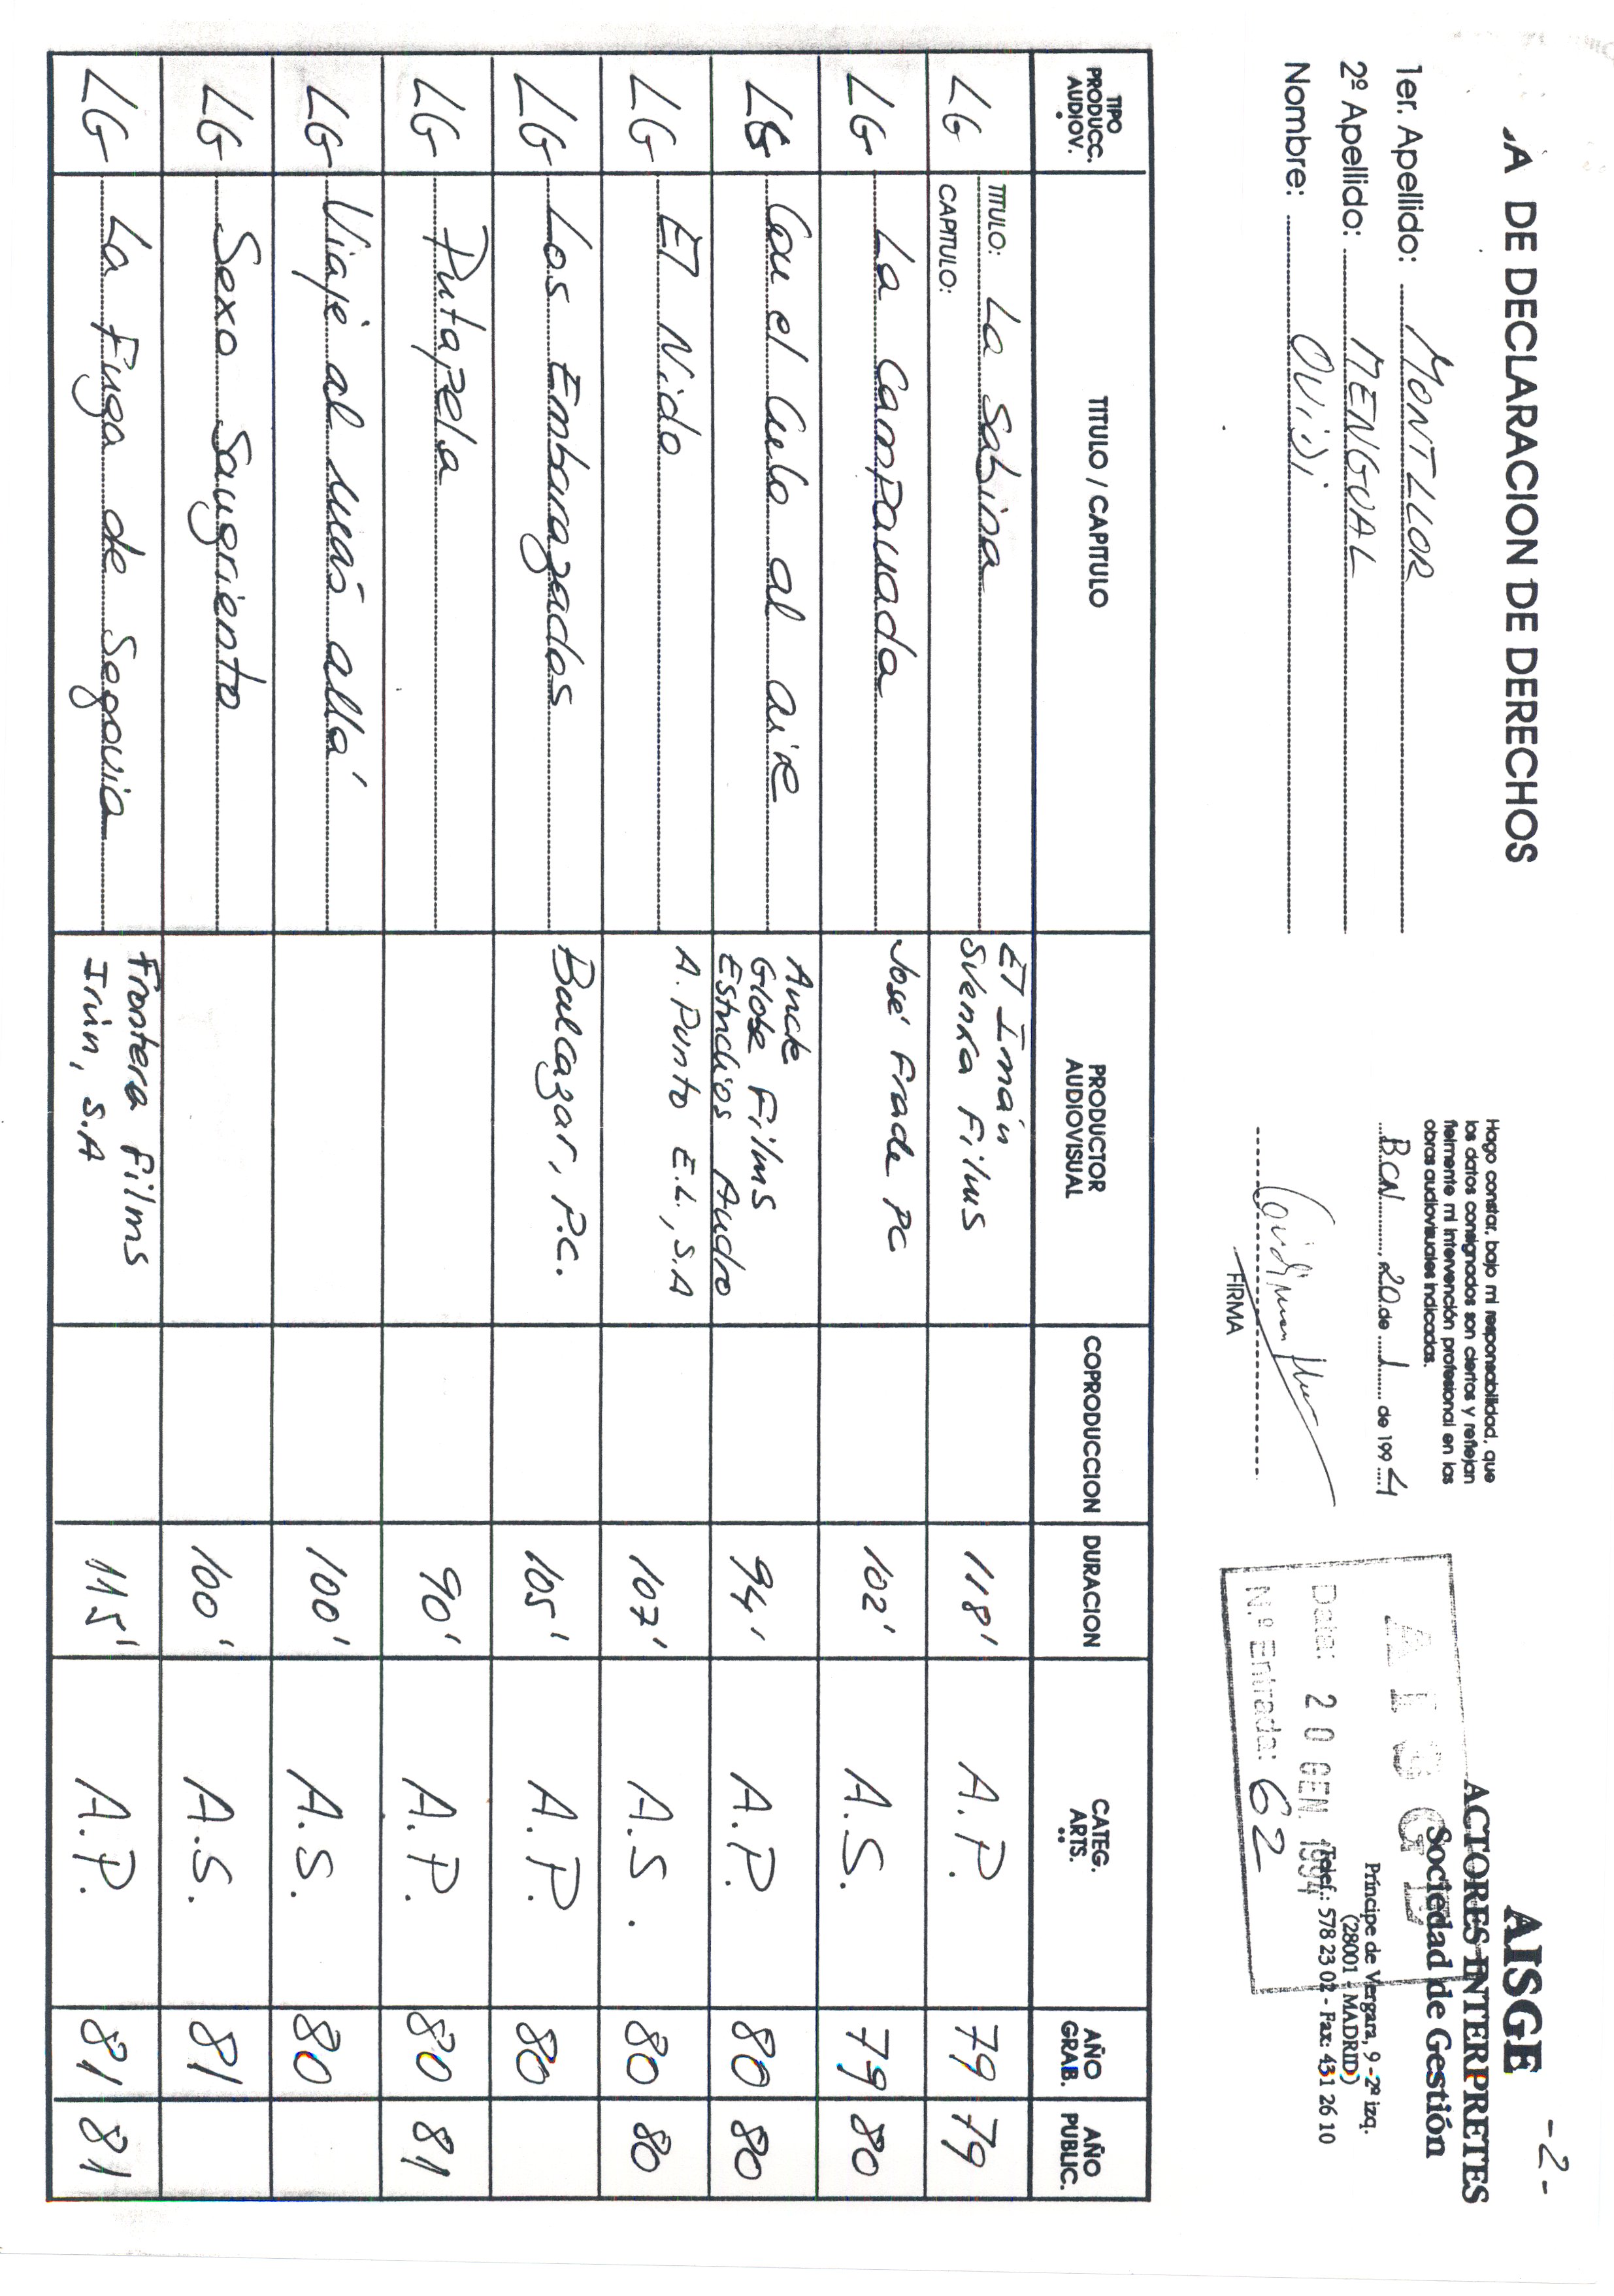 -2-
A DE DECLARACION DE DERECHOS
1er. Apellido: MONTLLOR
2º Apellido: MENGUAL
Nombre: OVIDI
Hago constar, bajo mi responsabilidad, que
los datos consignados son ciertos y reflejan
fielmente mi intervención profesional en las
obras audiovisuales indicadas.
BCN, 20 de 1 de 1994
FIRMA
AISGE
ACTORES INTERPRETES
Sociedad de Gestión
Príncipe de Vergara, 9 - 2º izq.
(28001 MADRID)
Telef.: 578 23 02 - Fax: 431 26 10
AISGE
Data: 20 GEN. 1994
N.º Entrada: 62
TIPO PRODUCC. AUDIOV. • TITULO / CAPITULO PRODUCTOR AUDIOVISUAL COPRODUCCION DURACION CATEG. ARTS. •• AÑO GRAB. AÑO PUBLIC.
LG TITULO: La Sabina CAPITULO: El Imán Svenka Films 118' A.P. 79 79
LG La Campanada José Frade PC 102' A.S. 79 80
LG Con el Culo al aire Ancle Globe Films Estudios Audro 94' A.P. 80 80
LG El Nido A. Punto E.L., S.A 107' A.S. 80 80
LG Los Embarazados Balcazar, P.C. 105' A.P. 80
LG Putapela 90' A.P. 80 81
LG Viaje al más allá 100' A.S. 80
LG Sexo Sangriento 100' A.S. 81
LG La Fuga de Segovia Frontera Films Irún, S.A 115' A.P. 81 81